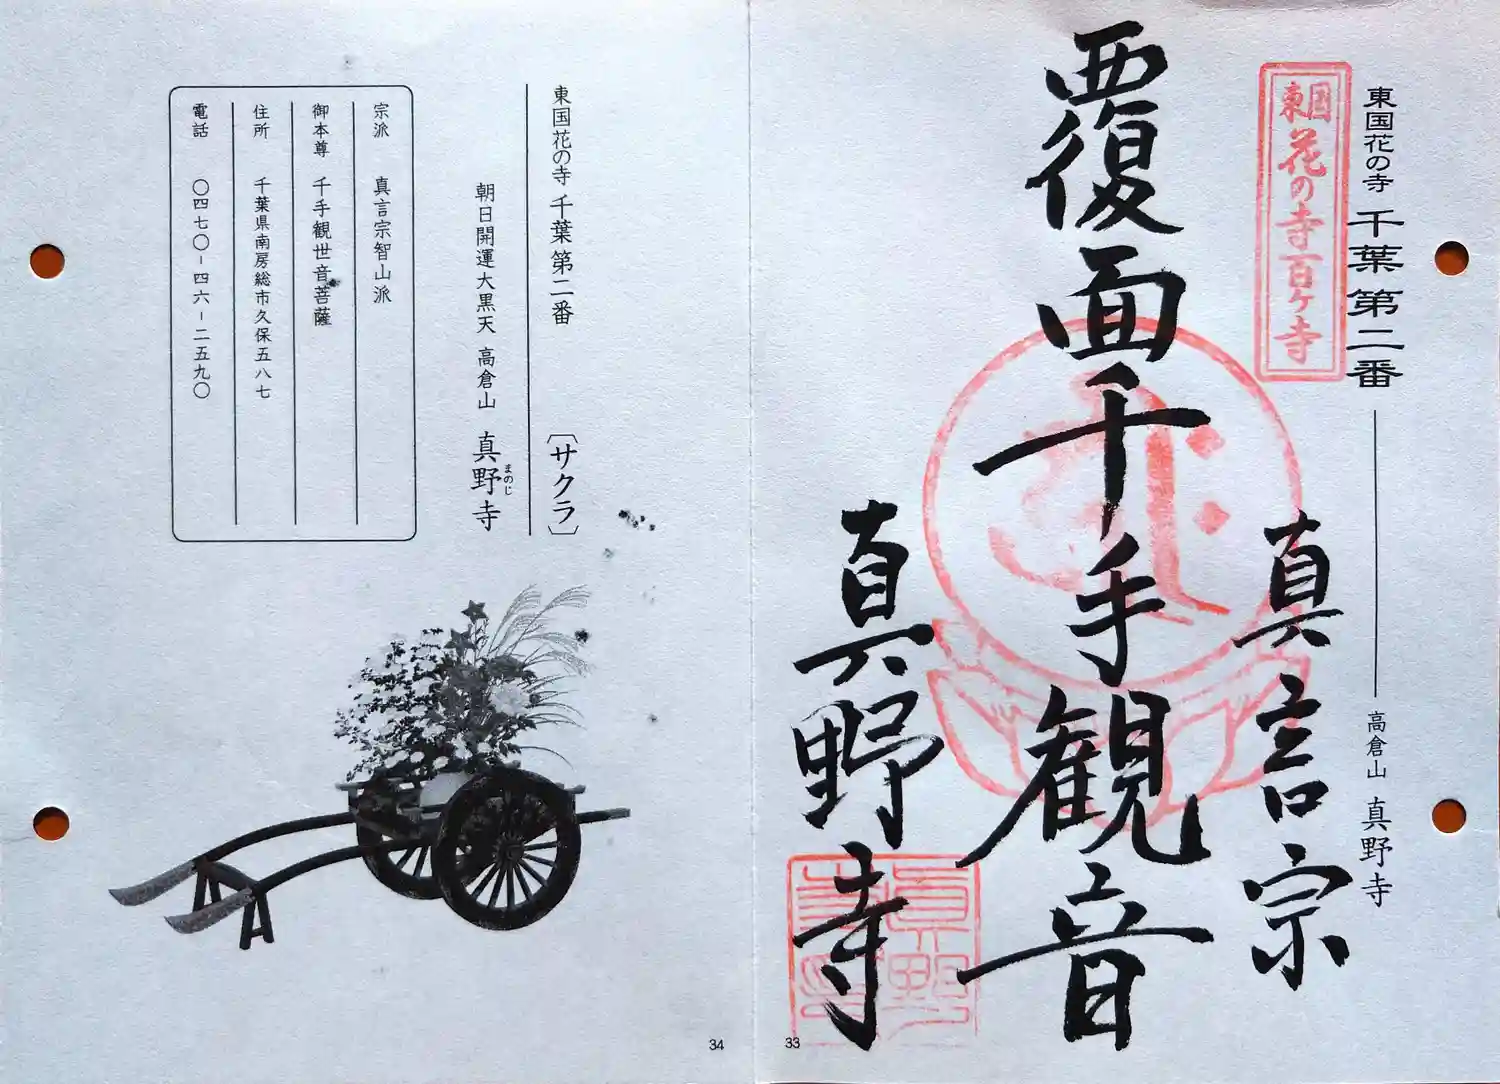 東国花の寺 千葉第二番 高倉山 真野寺
東国花の寺百ヶ寺
真言宗
覆面千手観音
真野寺
真野寺印
33
東国花の寺 千葉第二番 〔サクラ〕
朝日開運大黒天 高倉山 真野寺
まのじ
宗派 真言宗智山派
御本尊 千手観世音菩薩
住所 千葉県南房総市久保五八七
電話 〇四七〇-四六-二五九〇
34